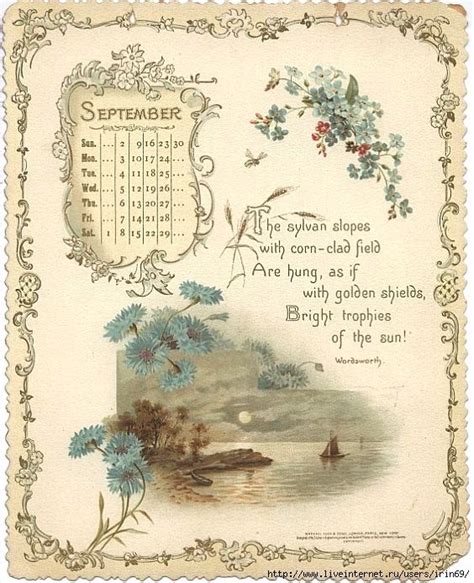 SEPTEMBER
Sun. ... 2 9 16 23 30
Mon. ... 3 10 17 24 ...
Tue. ... 4 11 18 25 ...
Wed. ... 5 12 19 26 ...
Thu. ... 6 13 20 27 ...
Fri. ... 7 14 21 28 ...
Sat. 1 8 15 22 29 ...
The sylvan slopes
with corn-clad field
Are hung, as if
with golden shields,
Bright trophies
of the sun!
Wordsworth.
http://www.liveinternet.ru/users/irin69/